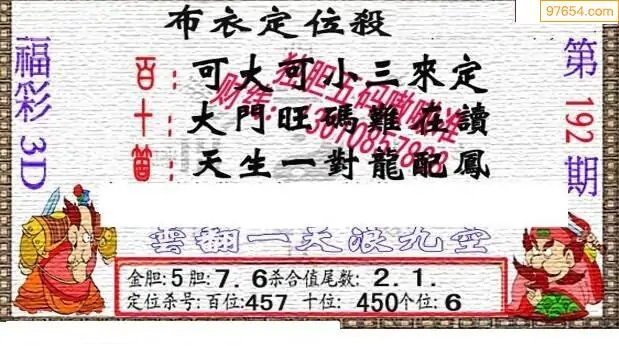 97654.com
布衣定位殺
福彩3D
第192期
百：可大可小三來定
十：大門旺碼難在讀
個：天生一對龍配鳳
雲翻一天浪九空
金胆:5胆:7.6杀合值尾数:2.1.
定位杀号:百位:457 十位:450个位:6